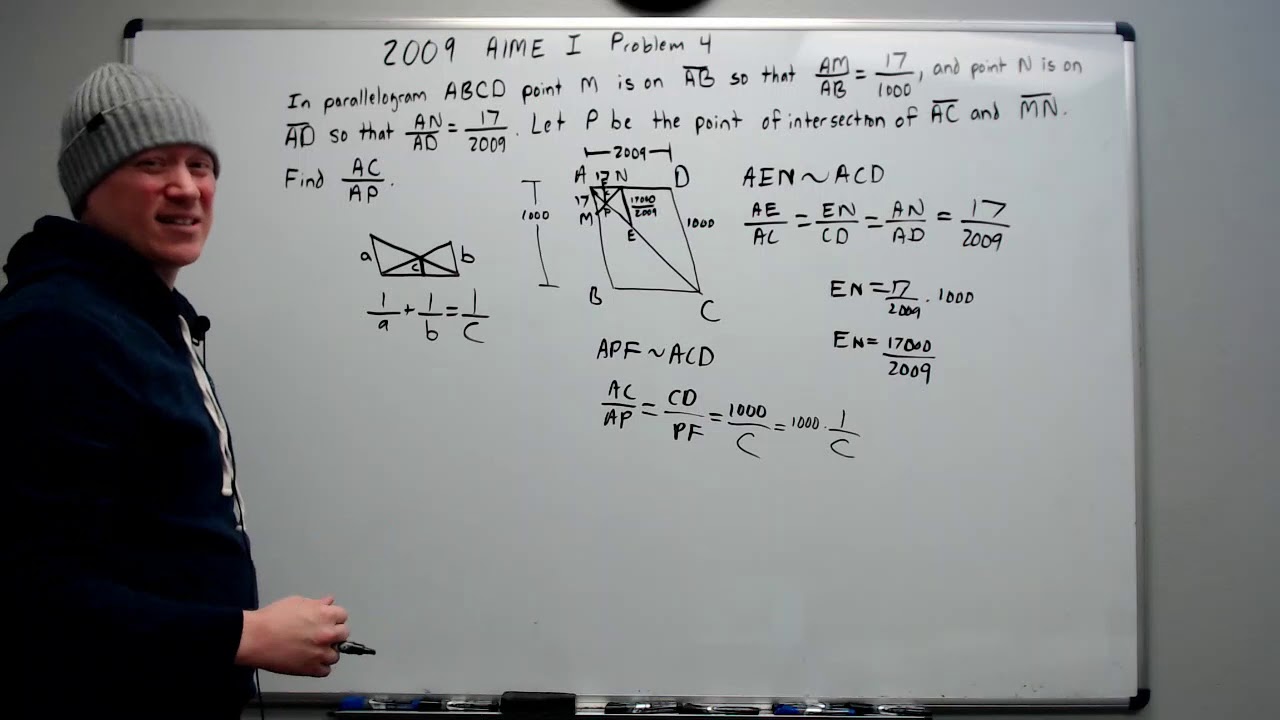 2009 AIME I Problem 4
In parallelogram ABCD point M is on AB so that AM/AB = 17/1000, and point N is on
AD so that AN/AD = 17/2009. Let P be the point of intersection of AC and MN.
Find AC/AP.
2009
A 17 N D
F
17
M
P
17000/2009
1000
1000
E
B
C
a b
c
1/a + 1/b = 1/c
AEN ~ ACD
AE/AC = EN/CD = AN/AD = 17/2009
EN = 17/2009 · 1000
EN = 17000/2009
APF ~ ACD
AC/AP = CD/PF = 1000/C = 1000 · 1/C